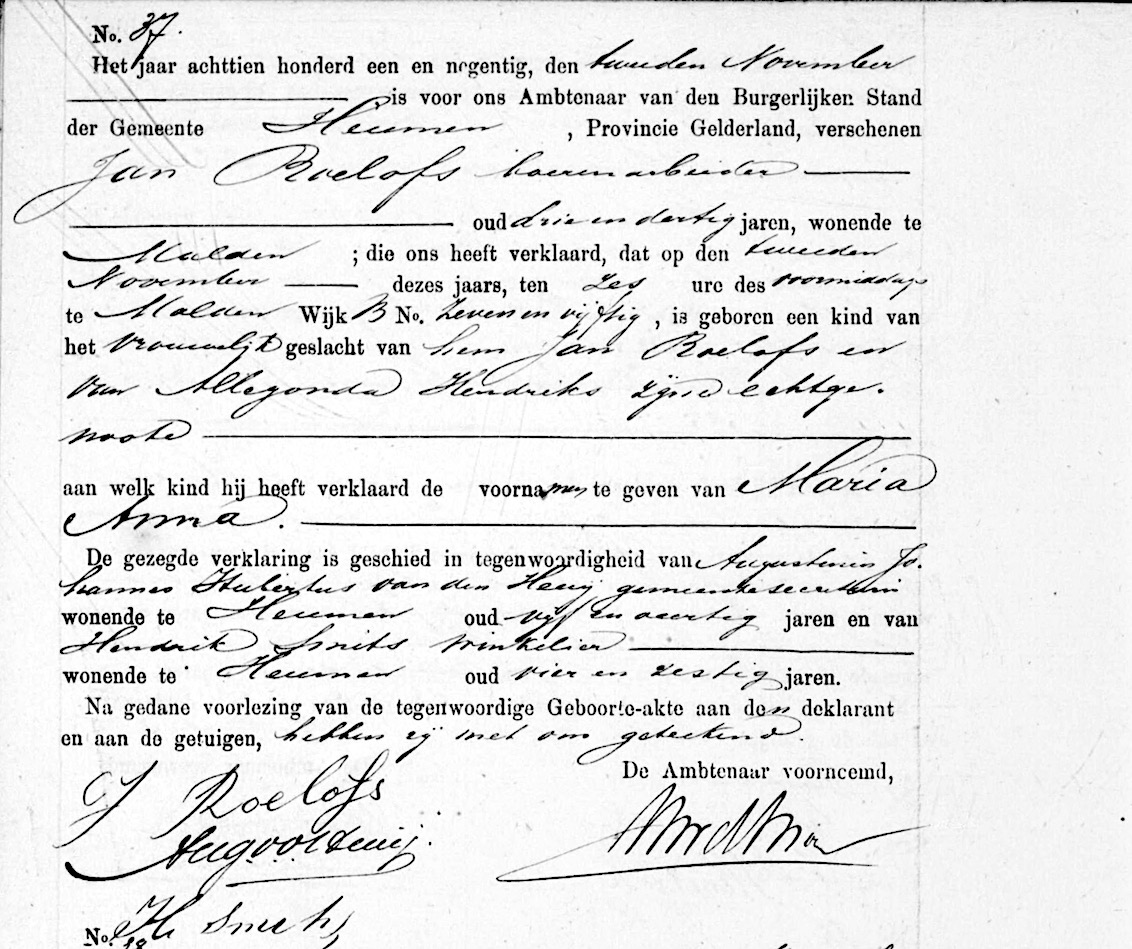 No. 37.
Het jaar achttien honderd een en negentig, den tweeden November
is voor ons Ambtenaar van den Burgerlijken Stand
der Gemeente Heumen, Provincie Gelderland, verschenen
Jan Roelofs boerenarbeider
oud drie en dertig jaren, wonende te
Malden ; die ons heeft verklaard, dat op den tweeden
November dezes jaars, ten zes ure des voormiddags
te Malden Wijk B No. zeven en vijftig, is geboren een kind van
het vrouwelijk geslacht van hem Jan Roelofs en
van Allegonda Hendriks zijne echtge-
noote
aan welk kind hij heeft verklaard de voornamen te geven van Maria
Anna.
De gezegde verklaring is geschied in tegenwoordigheid van Augustinus Jo-
hannes Hubertus van den gemeentesecretaris
wonende te Heumen oud vijf en veertig jaren en van
Hendrik Smits winkelier
wonende te Heumen oud vier en zestig jaren.
Na gedane voorlezing van de tegenwoordige Geboorte-akte aan den deklarant
en aan de getuigen, hebben zij met ons geteekend.
De Ambtenaar voornoemd,
J Roelofs
H Smits
No.